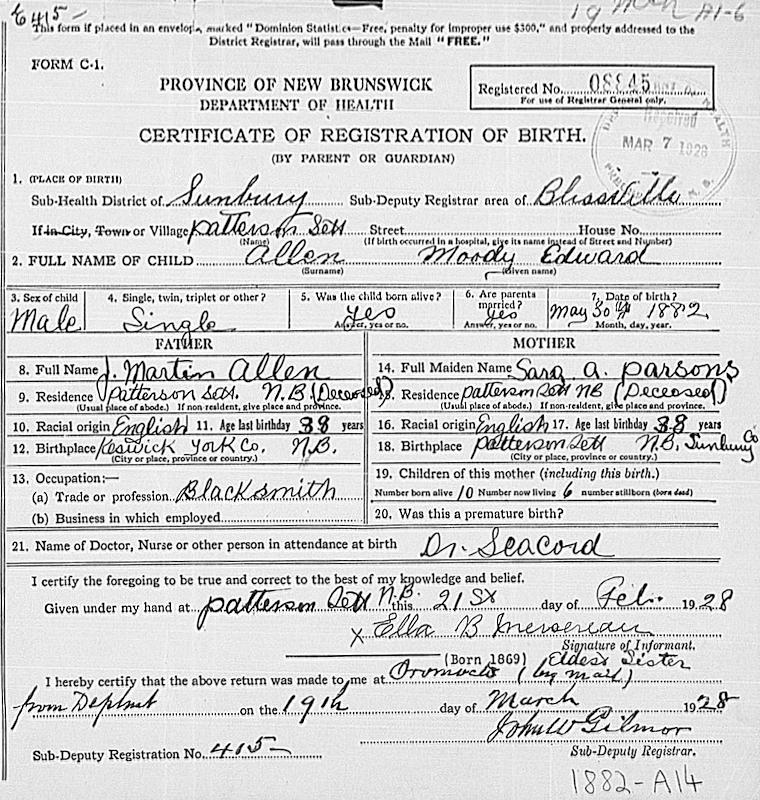 415 19 Mch A1-6
This form if placed in an envelope, marked "Dominion Statistics—Free, penalty for improper use $300," and properly addressed to the
District Registrar, will pass through the Mail "FREE."
FORM C-1.
PROVINCE OF NEW BRUNSWICK
DEPARTMENT OF HEALTH
Registered No. 08845
For use of Registrar General only.
CERTIFICATE OF REGISTRATION OF BIRTH.
(BY PARENT OR GUARDIAN)
Received
MAR 7 1928
HEALTH
N. B.
1. (PLACE OF BIRTH)
Sub-Health District of Sunbury Sub-Deputy Registrar area of Blissville
If in City, Town or Village Patterson Sett Street House No.
(Name) (If birth occurred in a hospital, give its name instead of Street and Number)
2. FULL NAME OF CHILD Allen Moody Edward
(Surname) (Given name)
3. Sex of child 4. Single, twin, triplet or other? 5. Was the child born alive? 6. Are parents married? 7. Date of birth?
Male Single Yes Yes May 30th 1882
Answer, yes or no. Answer, yes or no. Month, day, year.
FATHER
8. Full Name J. Martin Allen
9. Residence Patterson Sett. N.B. (Deceased)
(Usual place of abode.) If non-resident, give place and province.
10. Racial origin English 11. Age last birthday 38 years
12. Birthplace Keswick York Co. N.B.
(City or place, province or country.)
13. Occupation:—
(a) Trade or profession Blacksmith
(b) Business in which employed
MOTHER
14. Full Maiden Name Sara A. Parsons
15. Residence Patterson Sett NB (Deceased)
(Usual place of abode.) If non-resident, give place and province.
16. Racial origin English 17. Age last birthday 38 years
18. Birthplace Patterson Sett N.B. Sunbury Co
(City or place, province or country.)
19. Children of this mother (including this birth.)
Number born alive 10 Number now living 6 number stillborn (born dead)
20. Was this a premature birth?
21. Name of Doctor, Nurse or other person in attendance at birth Dr. Seacord
I certify the foregoing to be true and correct to the best of my knowledge and belief.
Given under my hand at Patterson Sett N.B. this 21st day of Feb. 1928
X Ella B Mersereau
Signature of Informant.
(Born 1869) Eldest Sister
I hereby certify that the above return was made to me at Oromocto (by mail)
from Deptmt on the 19th day of March 1928
John W Gilmor
Sub-Deputy Registration No. 415 Sub-Deputy Registrar.
1882-A14